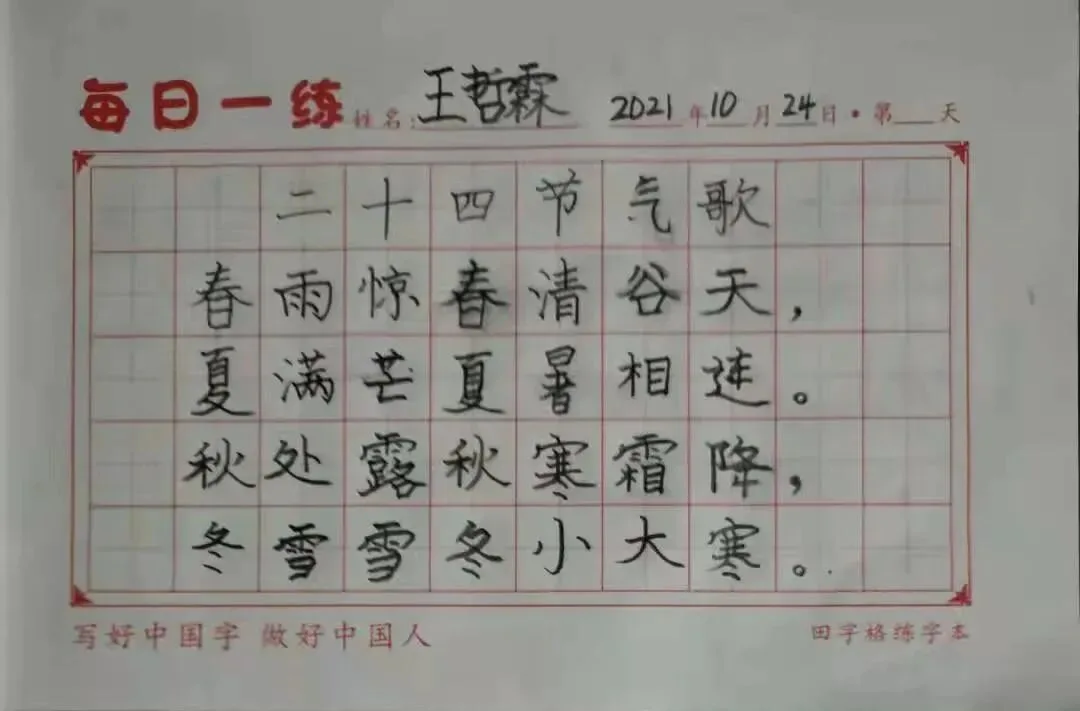 每日一练 姓名:王哲霖 2021年10月24日·第___天
二十四节气歌
春雨惊春清谷天，
夏满芒夏暑相连。
秋处露秋寒霜降，
冬雪雪冬小大寒。
写好中国字 做好中国人 田字格练字本